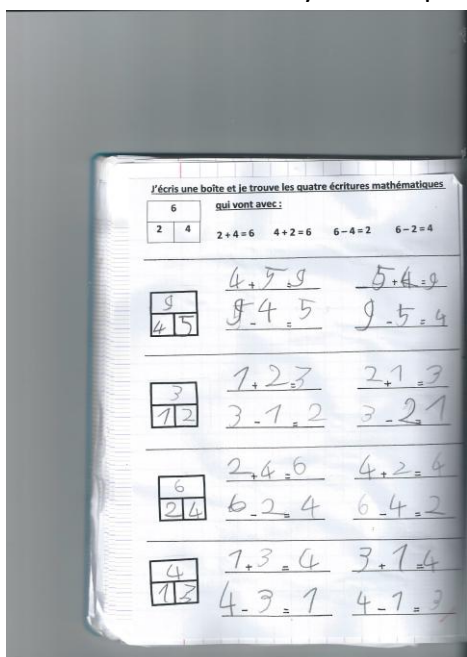 J'écris une boîte et je trouve les quatre écritures mathématiques
qui vont avec :
6
2 4
2 + 4 = 6 4 + 2 = 6 6 – 4 = 2 6 – 2 = 4
4 + 5 = 9 5 + 4 = 9
9
4 5
9 - 4 = 5 9 - 5 = 4
1 + 2 = 3 2 + 1 = 3
3
1 2
3 - 1 = 2 3 - 2 = 1
2 + 4 = 6 4 + 2 = 4
6
2 4
6 - 2 = 4 6 - 4 = 2
1 + 3 = 4 3 + 1 = 4
4
1 3
4 - 3 = 1 4 - 1 = 3